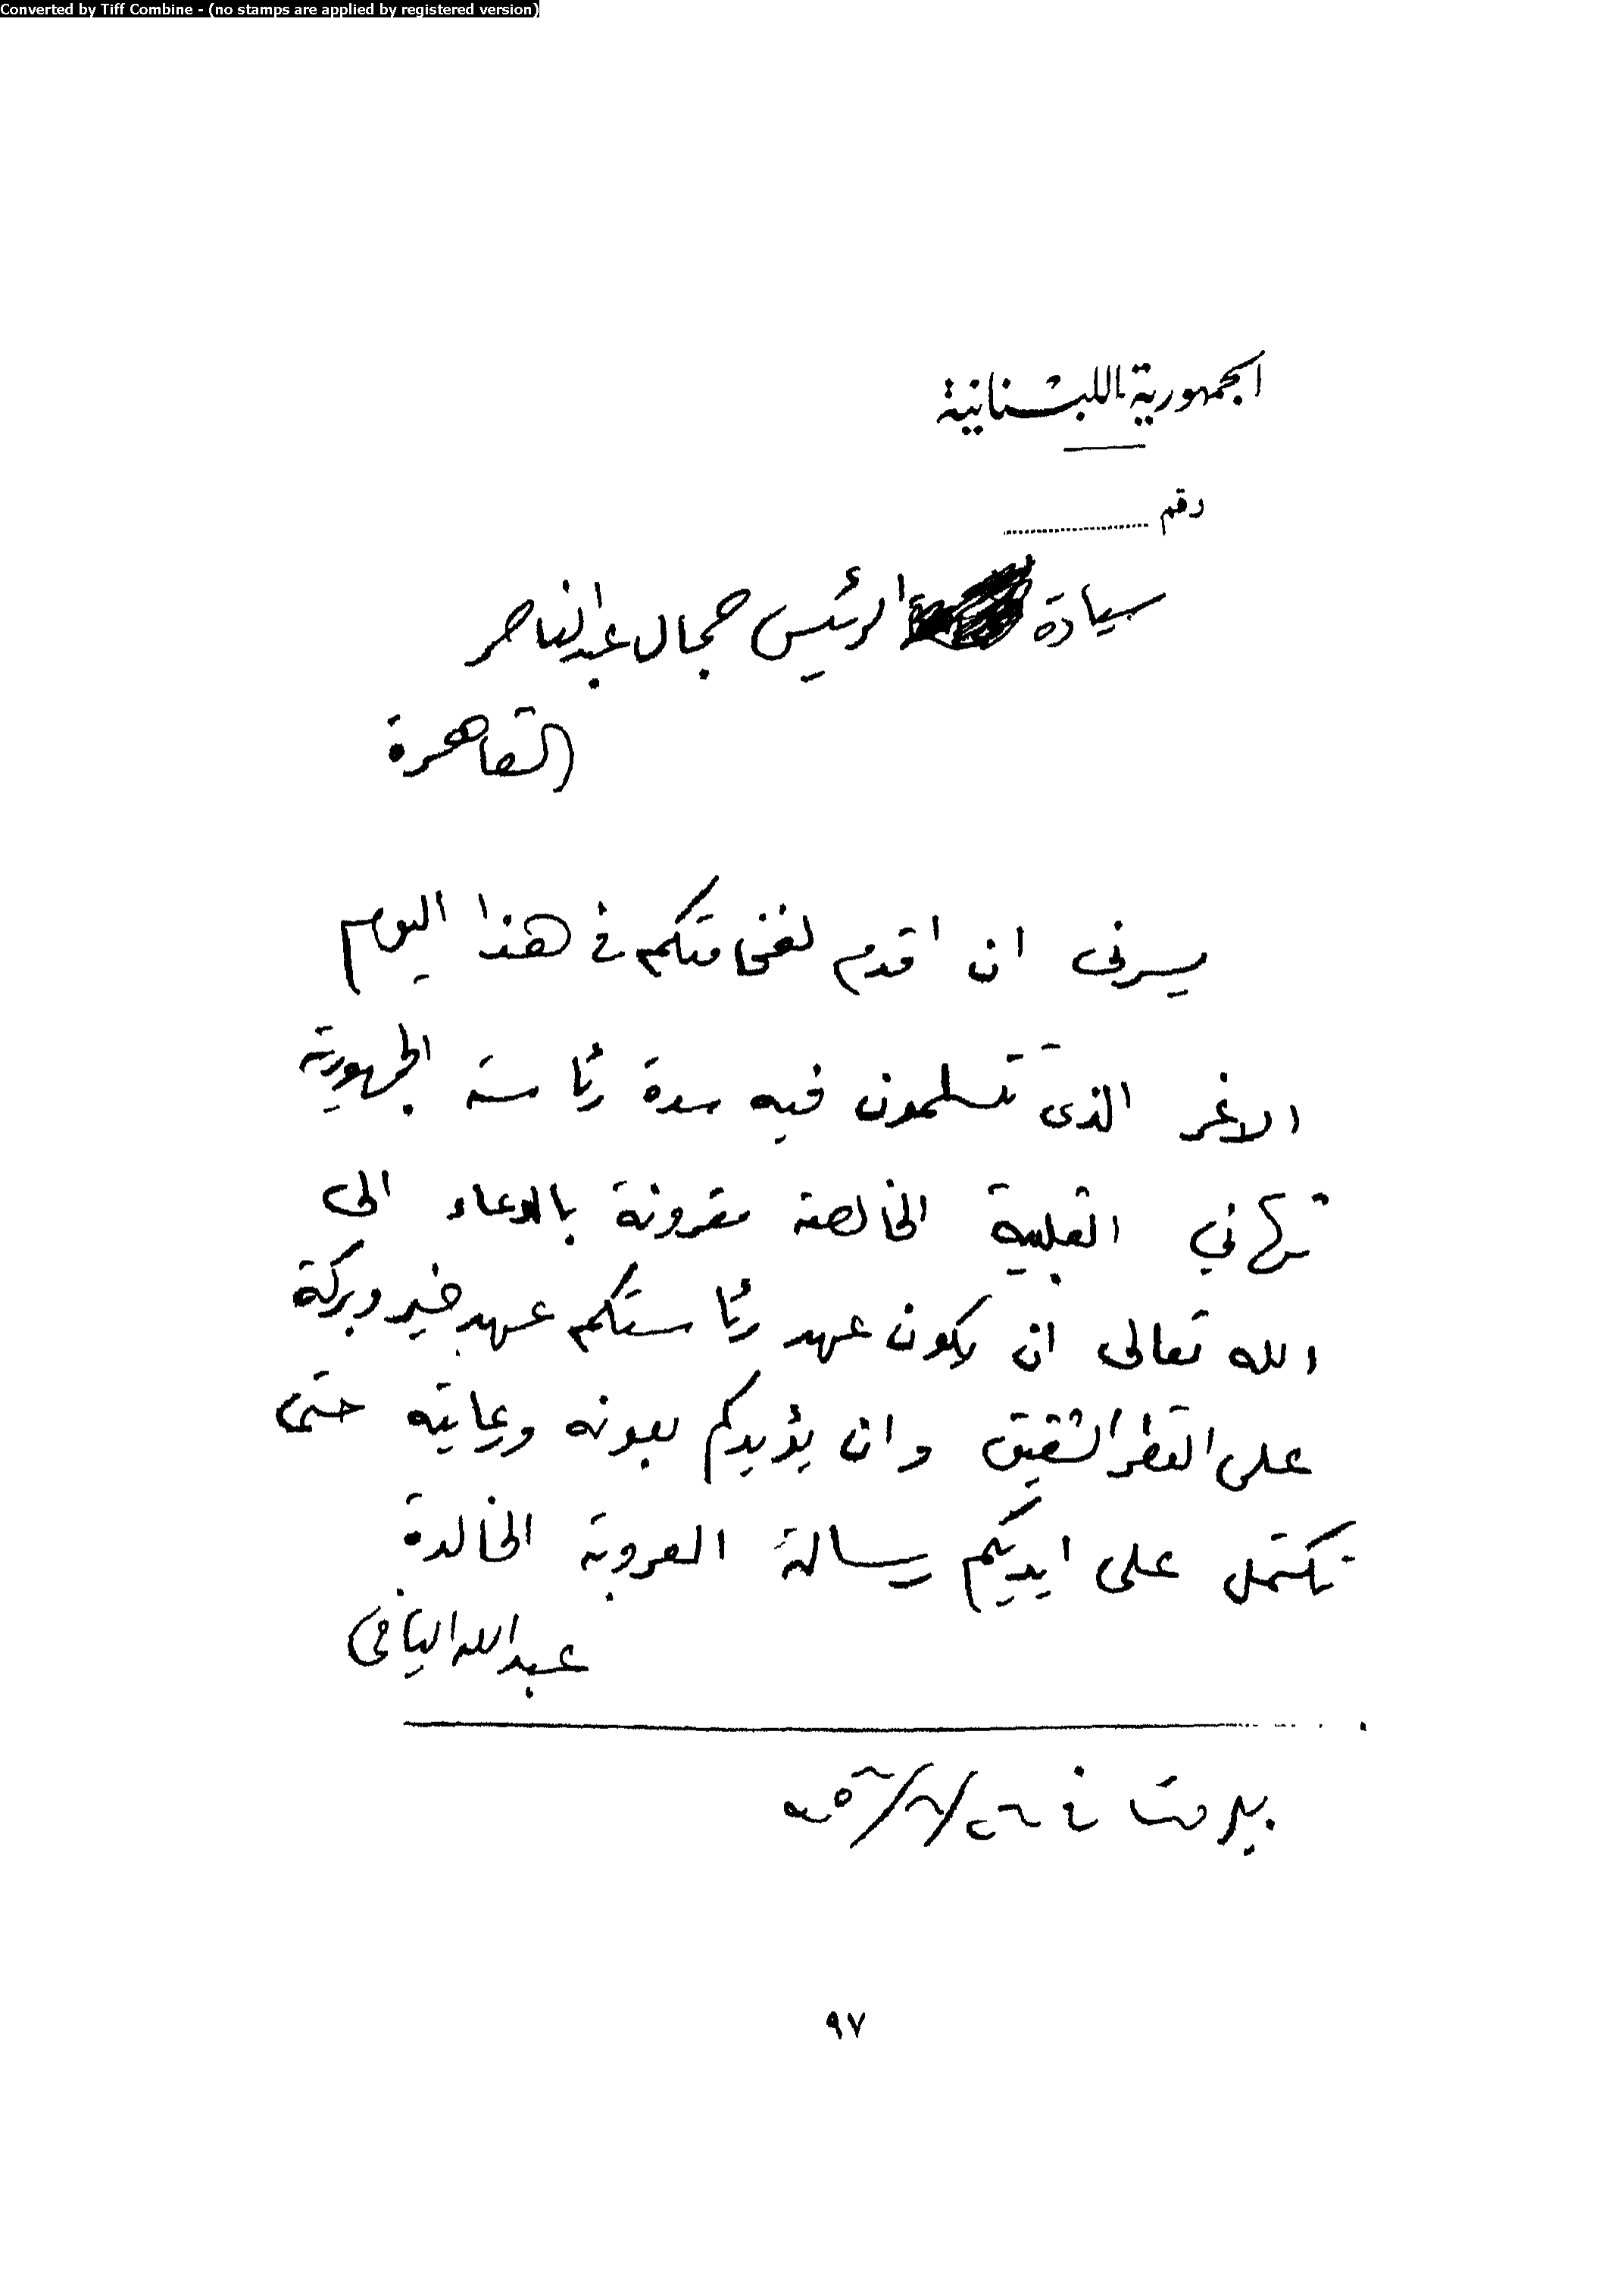 Converted by Tiff Combine - (no stamps are applied by registered version)
الجمهورية اللبنانية
رقم ..........
سيادة الرئيس جمال عبد الناصر
القاهرة
يسرني ان اقدم لفخامتكم في هذا اليوم
الاغر الذي تتسلمون فيه سدة رئاسة الجمهورية
تهاني القلبية الخالصة مقرونة بالدعاء الى
الله تعالى ان يكون عهد رئاستكم عهد خير وبركة
على القطر الشقيق وان يؤيدكم بعونه ورعايته حتى
تكتمل على ايديكم رسالة العروبة الخالدة
عبد الله اليافي
بيروت في
٩٧